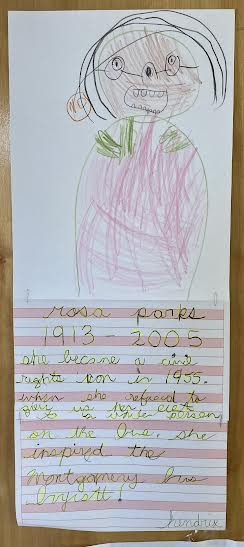 rosa parks
1913-2005
she became a civil
rights icon in 1955.
when she refused to
give us her seat
to a white person
on the bus. she
inspired the
Montgomery bus
boycott!
hendrix